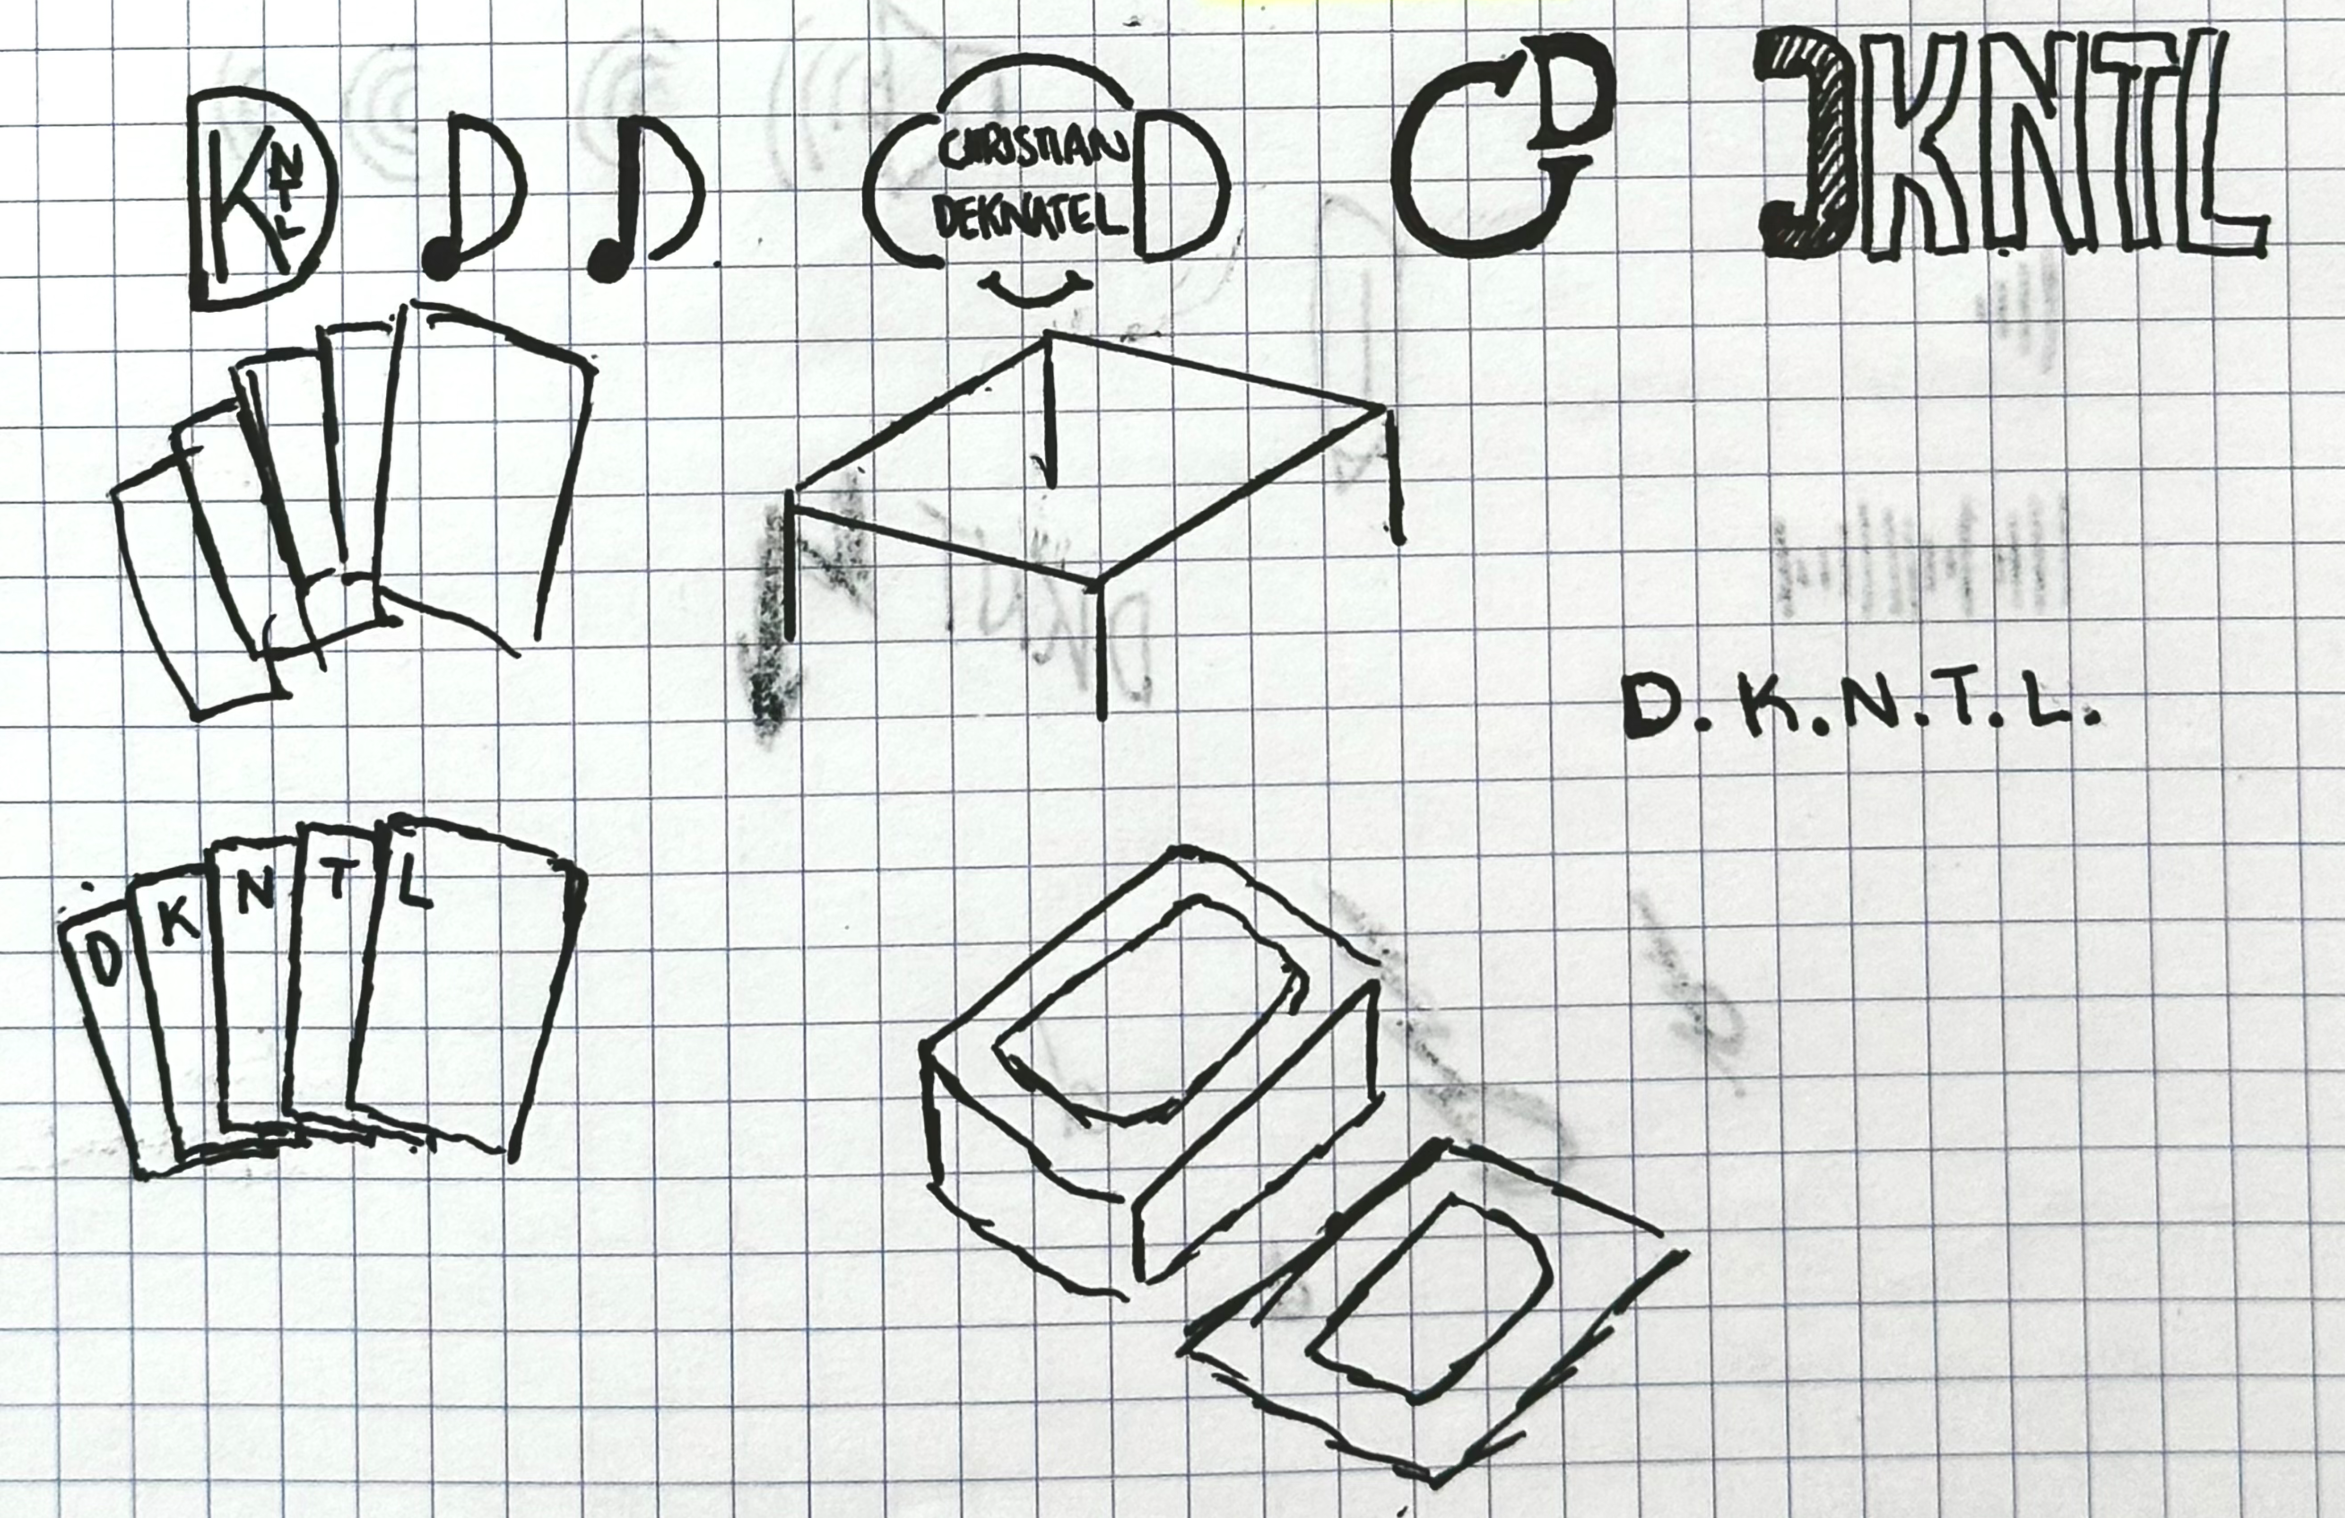 D K N T L
D
D
C CHRISTIAN D
DEKNATEL
C D
DKNTL
DKNT
D.K.N.T.L.
D K N T L